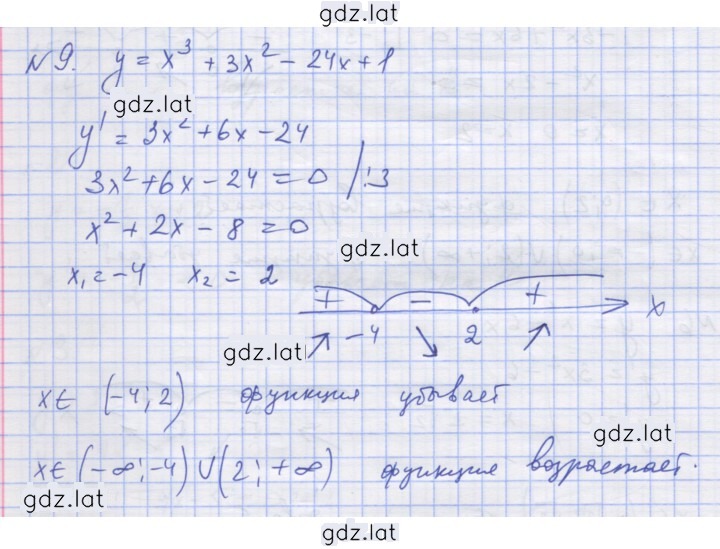 gdz.lat
№9. y = x³ + 3x² − 24x + 1
gdz.lat
y' = 3x² + 6x − 24
3x² + 6x − 24 = 0 /:3
x² + 2x − 8 = 0
gdz.lat
x₁ = −4 x₂ = 2
+ − + x
−4 2
gdz.lat
↗ ↘ ↗
x∈ (−4; 2) функция убывает
gdz.lat
x∈ (−∞; −4) ∪ (2; +∞) функция возрастает.
gdz.lat
gdz.lat